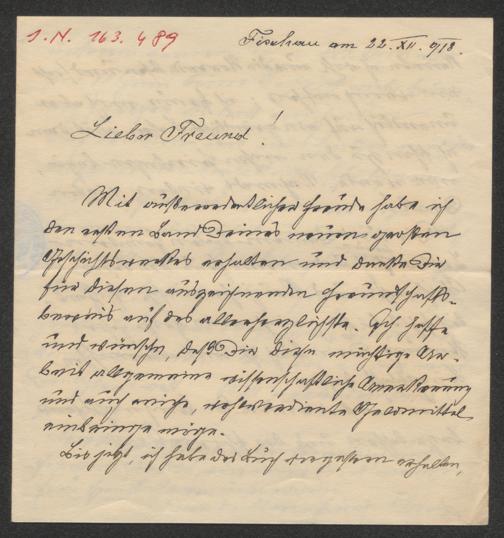 J. N. 163.489
Fischau am 22. XII. 918.
Lieber Freund!
Mit außerordentlicher Freude habe ich
den ersten Band Deines neuen großen
Geschichtswerkes erhalten und danke Dir
für diesen auszeichnenden Freundschafts-
beweis auf das allerherzlichste. Ich hoffe
und wünsche, daß Dir diese mächtige Ar-
beit allgemeine wissenschaftliche Anerkennung
und auch reiche, wohlverdiente Geldmittel
einbringe möge.
Bis jetzt, ich habe das Buch vorgestern erhalten,